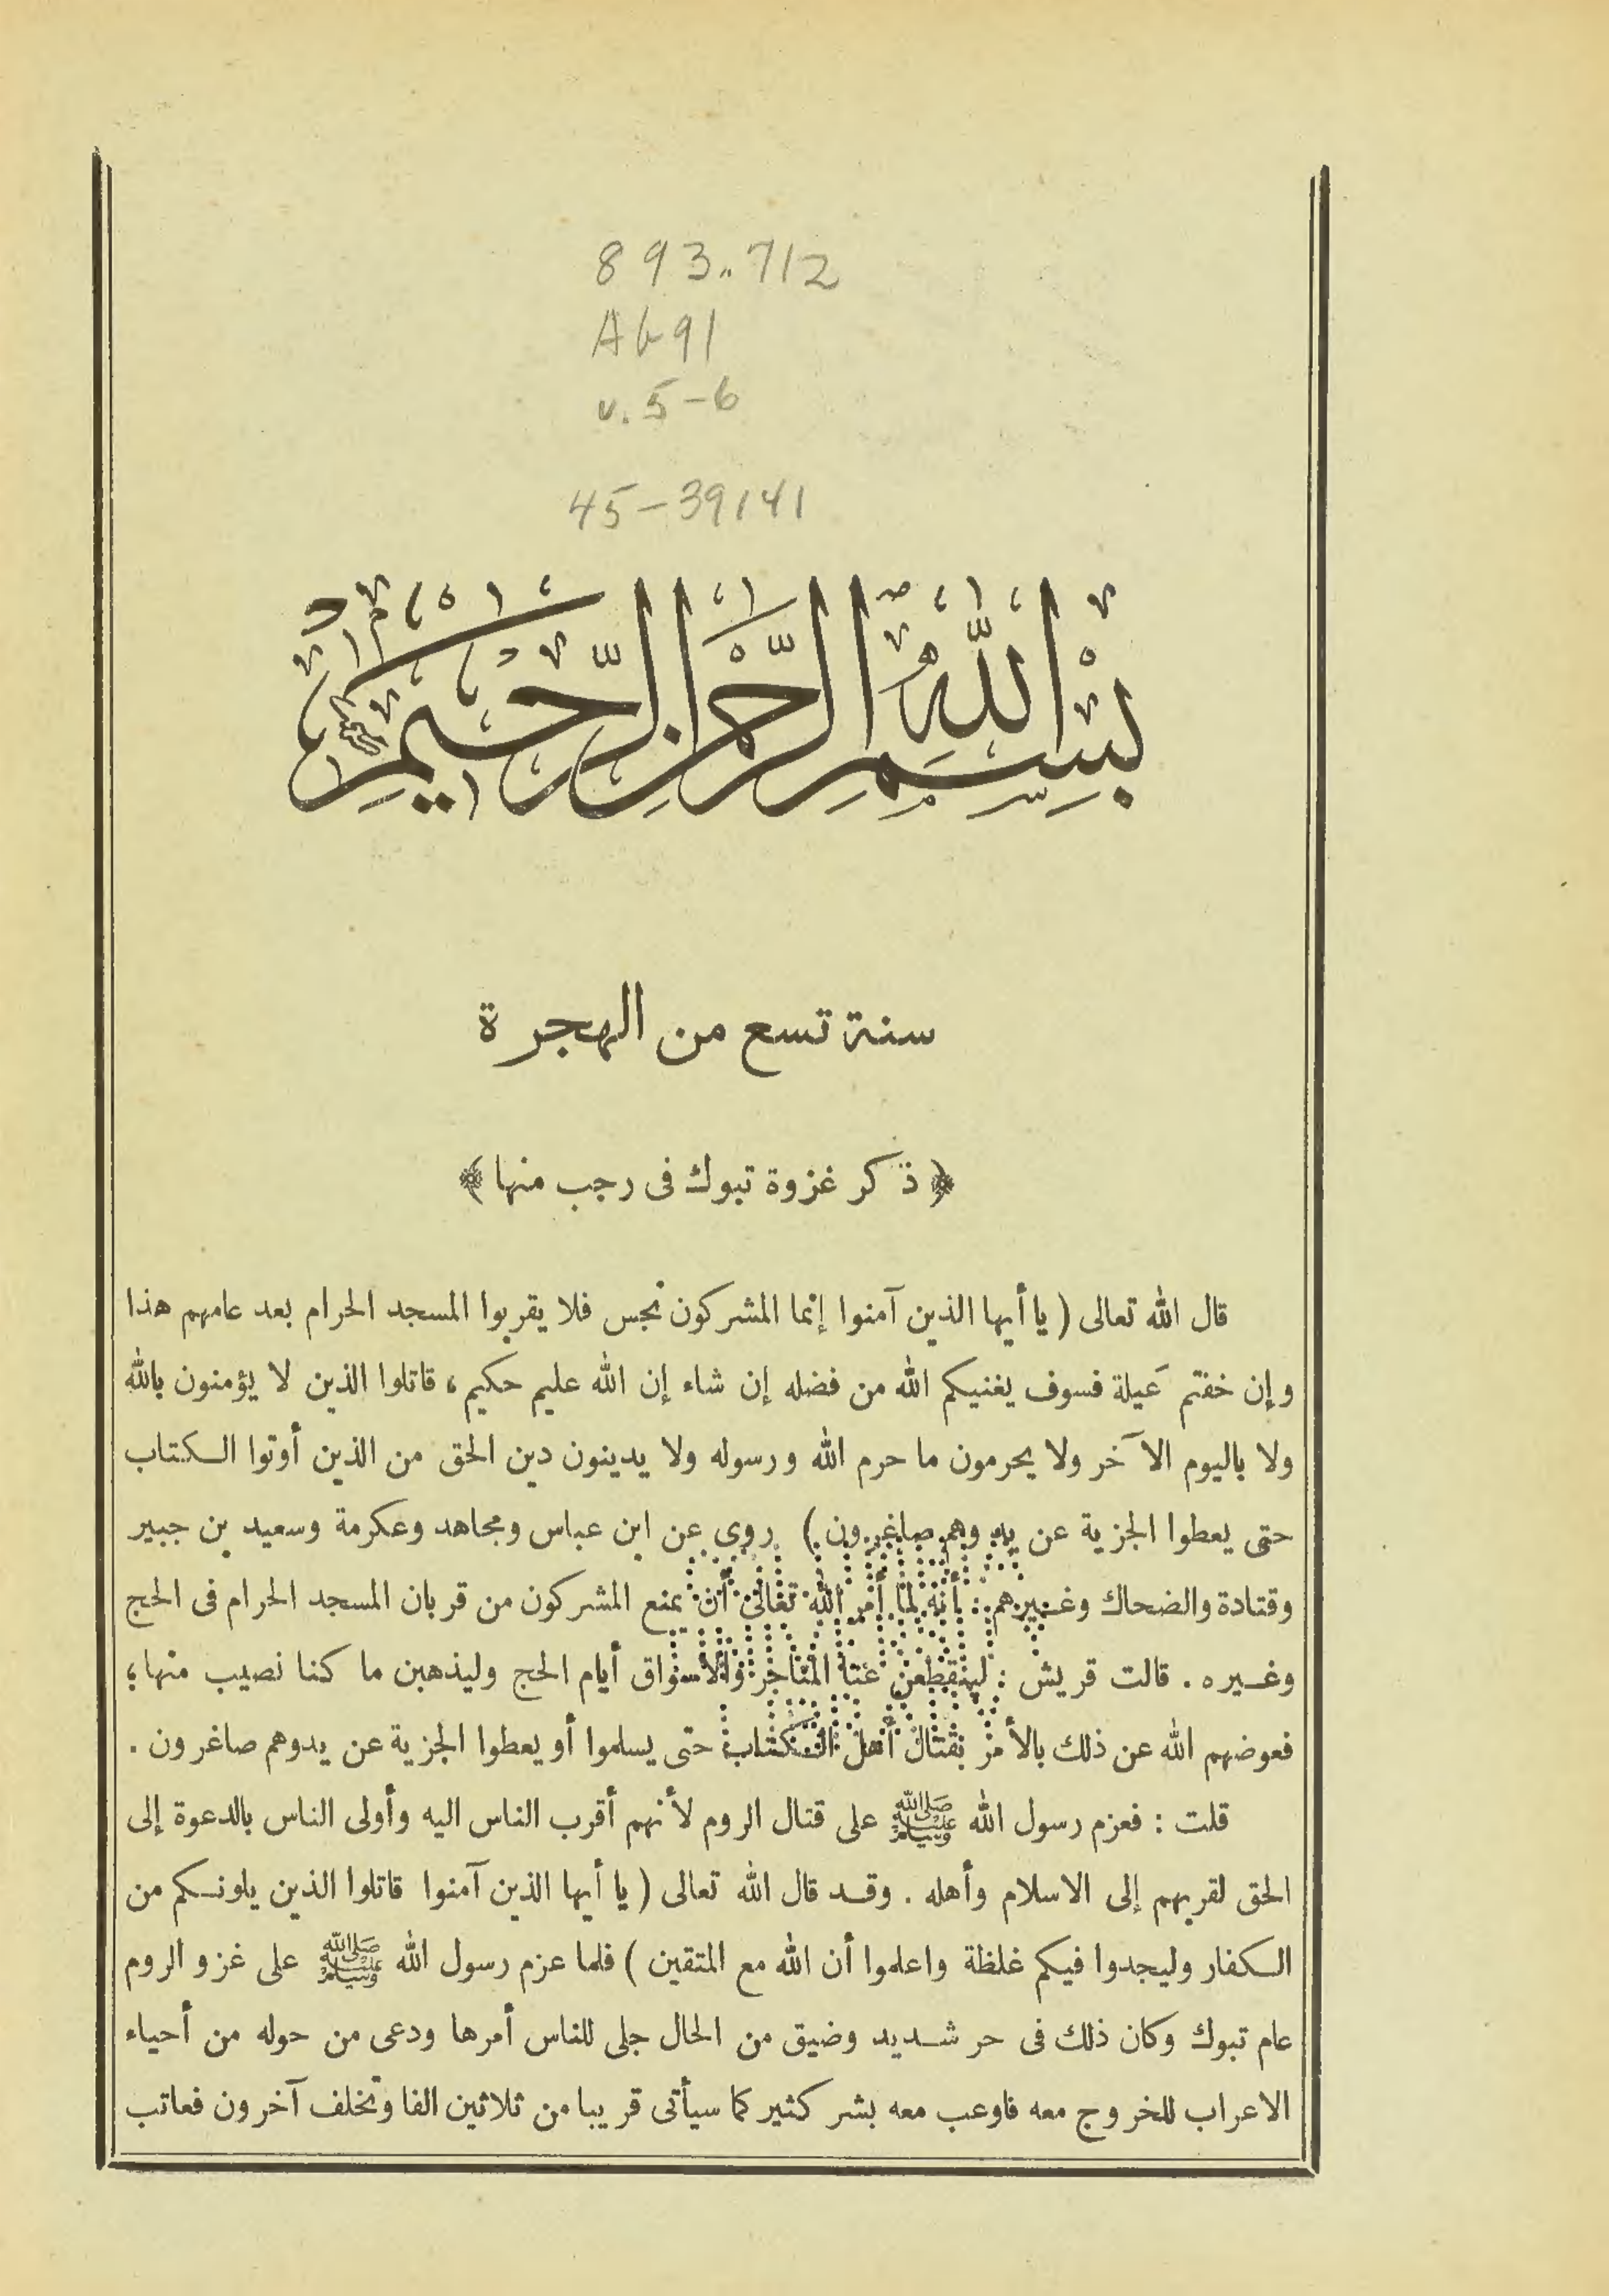 893.712
Ab91
v. 5-6
45-39141
بِسْمِ اللهِ الرَّحْمٰنِ الرَّحِيمِ
سنة تسع من الهجرة
﴿ ذكر غزوة تبوك فى رجب منها ﴾
قال الله تعالى ( يا أيها الذين آمنوا إنما المشركون نجس فلا يقربوا المسجد الحرام بعد عامهم هذا
وإن خفتم عَيلة فسوف يغنيكم الله من فضله إن شاء إن الله عليم حكيم ، قاتلوا الذين لا يؤمنون بالله
ولا باليوم الآخر ولا يحرمون ما حرم الله ورسوله ولا يدينون دين الحق من الذين أوتوا الكتاب
حتى يعطوا الجزية عن يد وهم صاغرون ) روى عن ابن عباس ومجاهد وعكرمة وسعيد بن جبير
وقتادة والضحاك وغيرهم : أنه لما أمر الله تعالى أن يمنع المشركون من قربان المسجد الحرام فى الحج
وغيره . قالت قريش : لينقطعن عنا المتاجر والأسواق أيام الحج وليذهبن ما كنا نصيب منها ؛
فعوضهم الله عن ذلك بالأمر بقتال أهل الكتاب حتى يسلموا أو يعطوا الجزية عن يد وهم صاغرون .
قلت : فعزم رسول الله ﷺ على قتال الروم لأنهم أقرب الناس اليه وأولى الناس بالدعوة إلى
الحق لقربهم إلى الاسلام وأهله . وقد قال الله تعالى ( يا أيها الذين آمنوا قاتلوا الذين يلونكم من
الكفار وليجدوا فيكم غلظة واعلموا أن الله مع المتقين ) فلما عزم رسول الله ﷺ على غزو الروم
عام تبوك وكان ذلك فى حر شديد وضيق من الحال جلى للناس أمرها ودعى من حوله من أحياء
الاعراب للخروج معه فاوعب معه بشر كثير كما سيأتى قريبا من ثلاثين الفا وتخلف آخرون فعاتب